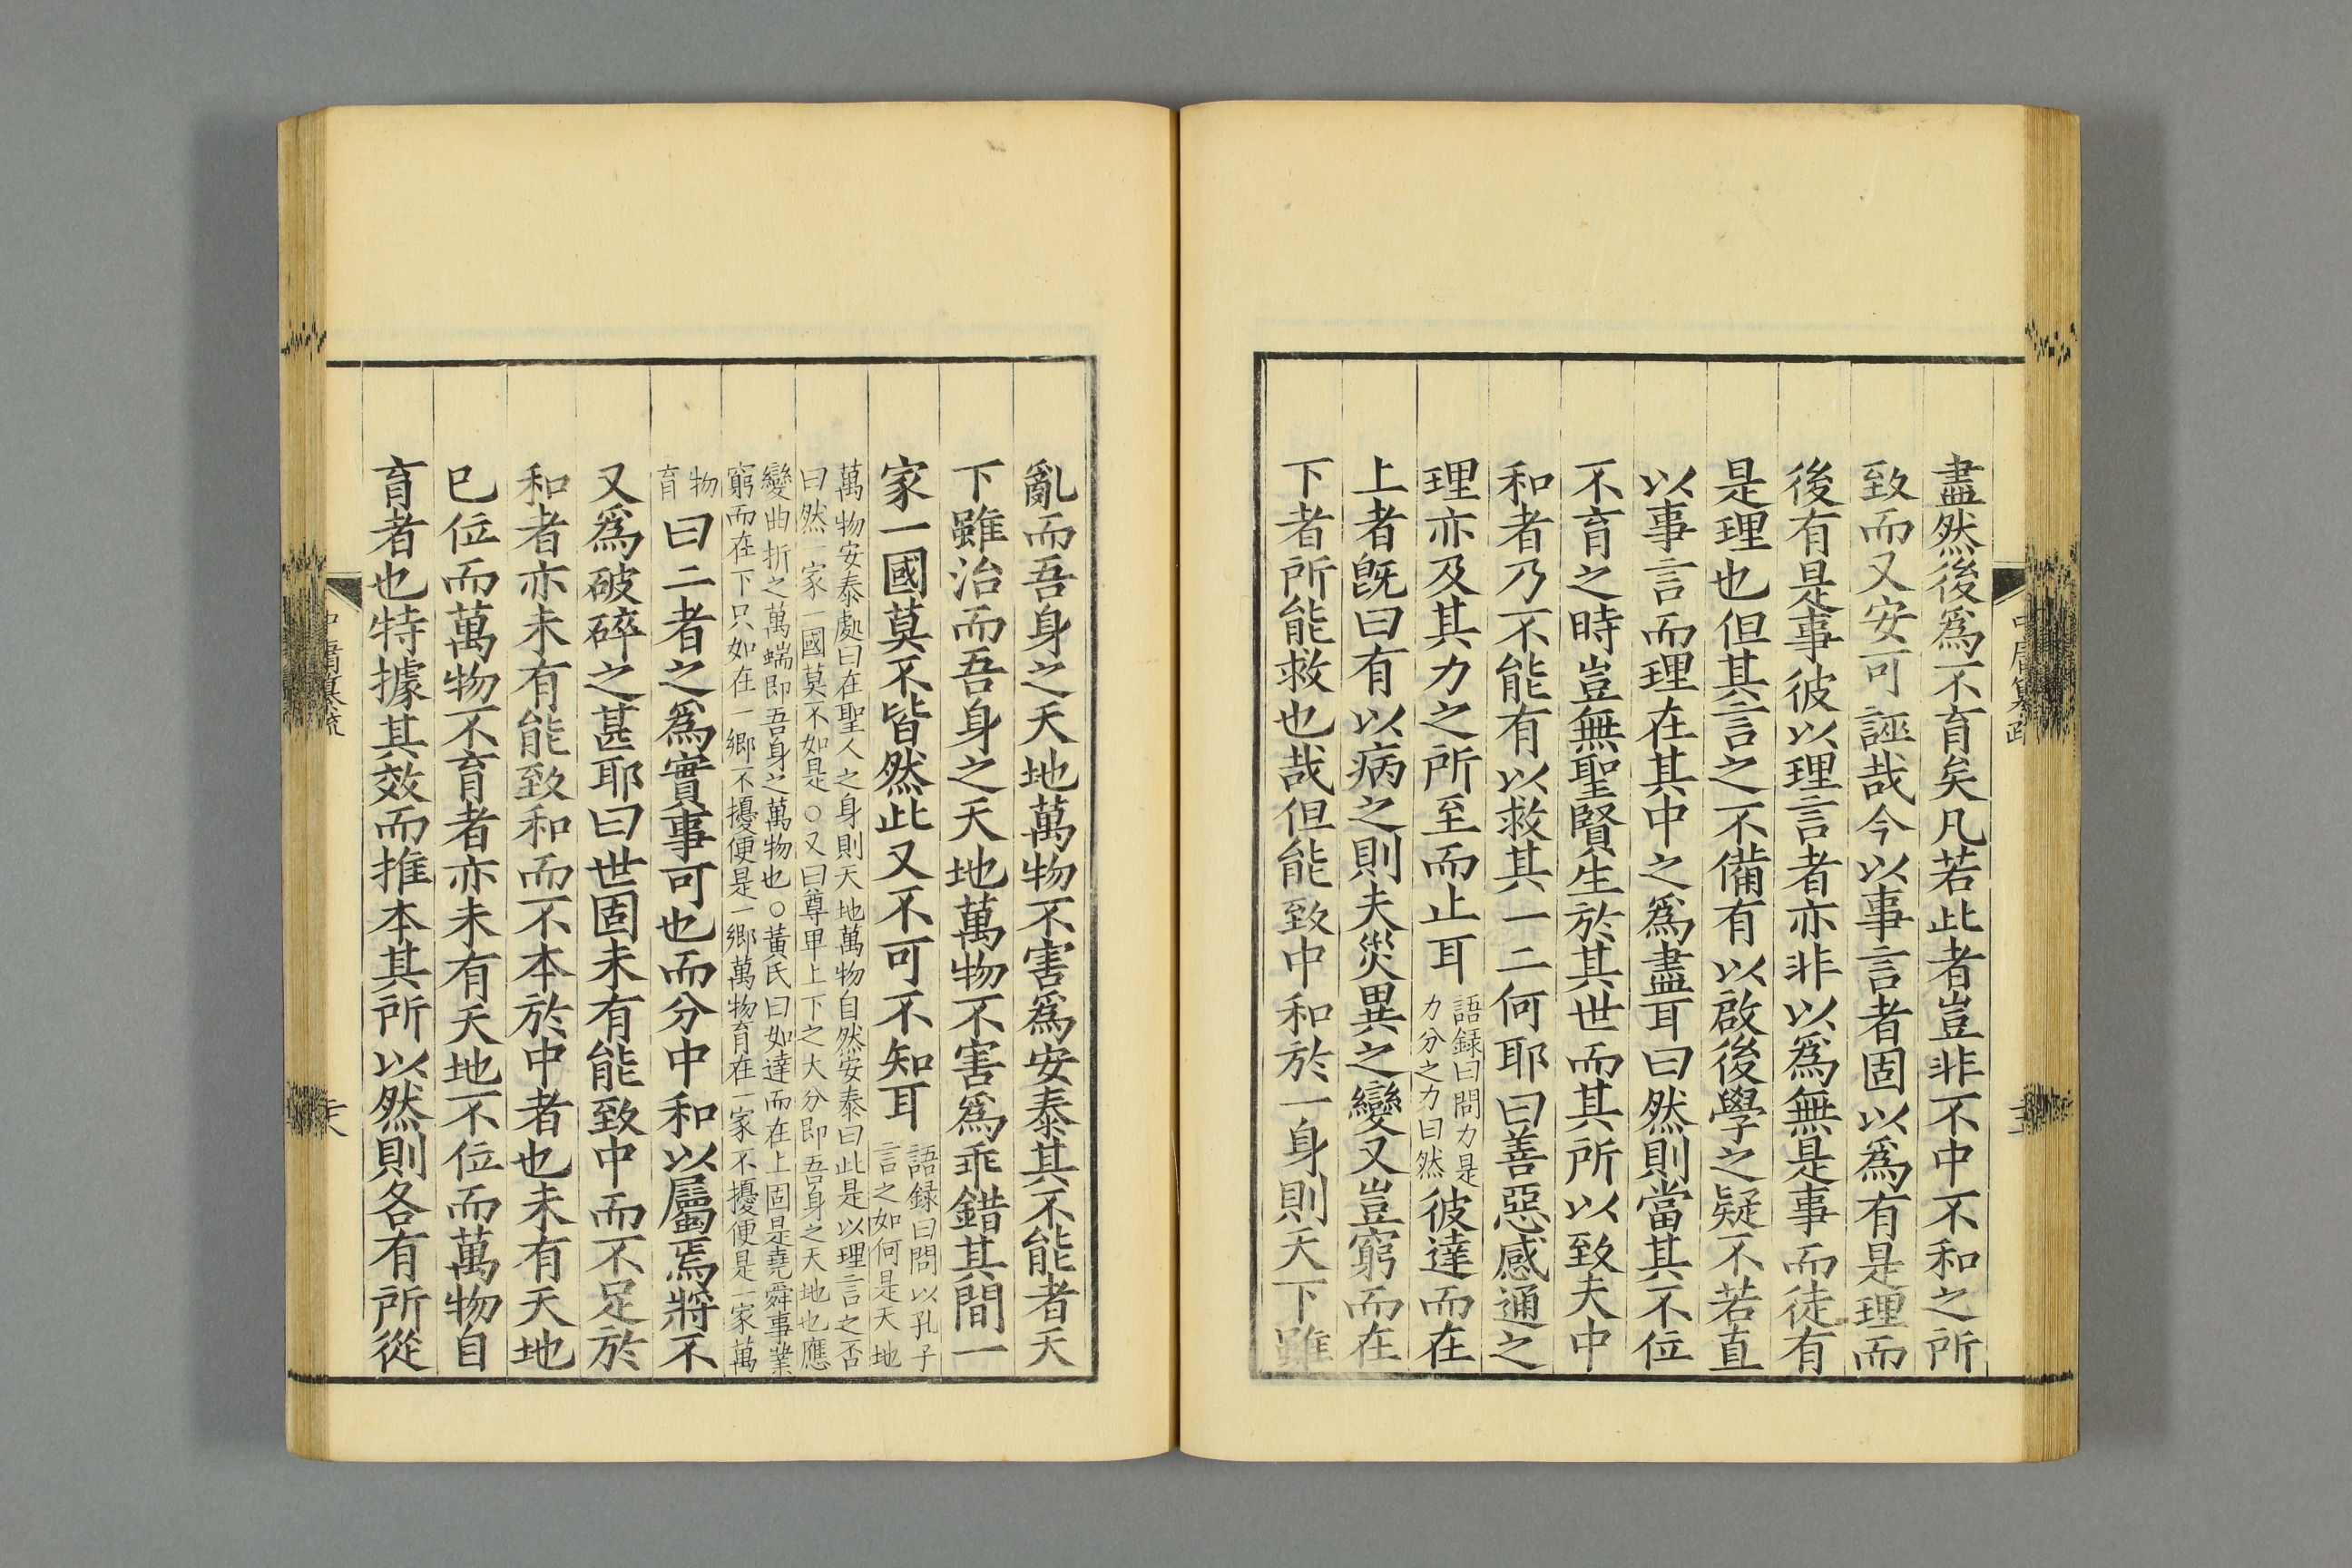 盡然後爲不育矣凡若此者豈非不中不和之所
致而又安可誣哉今以事言者固以爲有是理而
後有是事彼以理言者亦非以爲無是事而徒有
是理也但其言之不備有以啟後學之疑不若直
以事言而理在其中之爲盡耳曰然則當其不位
不育之時豈無聖賢生於其世而其所以致夫中
和者乃不能有以救其一二何耶曰善惡感通之
理亦及其力之所至而止耳
語録曰問力是
力分之力曰然
彼達而在
上者旣曰有以病之則夫災異之變又豈窮而在
下者所能救也哉但能致中和於一身則天下雖
亂而吾身之天地萬物不害爲安泰其不能者天
下雖治而吾身之天地萬物不害爲乖錯其間一
家一國莫不皆然此又不可不知耳
語録曰問以孔子
言之如何是天地
萬物安泰處曰在聖人之身則天地萬物自然安泰曰此是以理言之否
曰然一家一國莫不如是○又曰尊卑上下之大分即吾身之天地也應
變曲折之萬端即吾身之萬物也○黃氏曰如達而在上固是堯舜事業
窮而在下只如在一鄉不擾便是一鄉萬物育在一家不擾便是一家萬
物
育
曰二者之爲實事可也而分中和以屬焉將不
又爲破碎之甚耶曰世固未有能致中而不足於
和者亦未有能致和而不本於中者也未有天地
已位而萬物不育者亦未有天地不位而萬物自
育者也特據其效而推本其所以然則各有所從